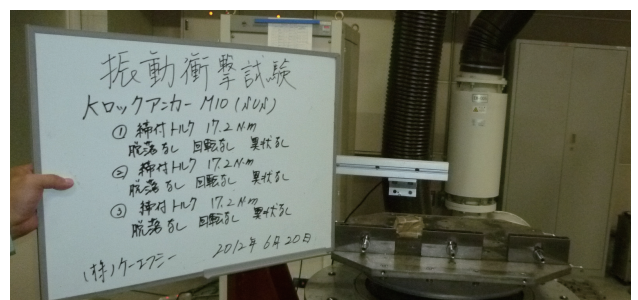 振動衝撃試験
Kロックアンカー M10 (SUS)
① 締付トルク 17.2 N・m
脱落なし 回転なし 異状なし
② 締付トルク 17.2 N・m
脱落なし 回転なし 異状なし
③ 締付トルク 17.2 N・m
脱落なし 回転なし 異状なし
(株)ケーエフシー 2012年6月20日